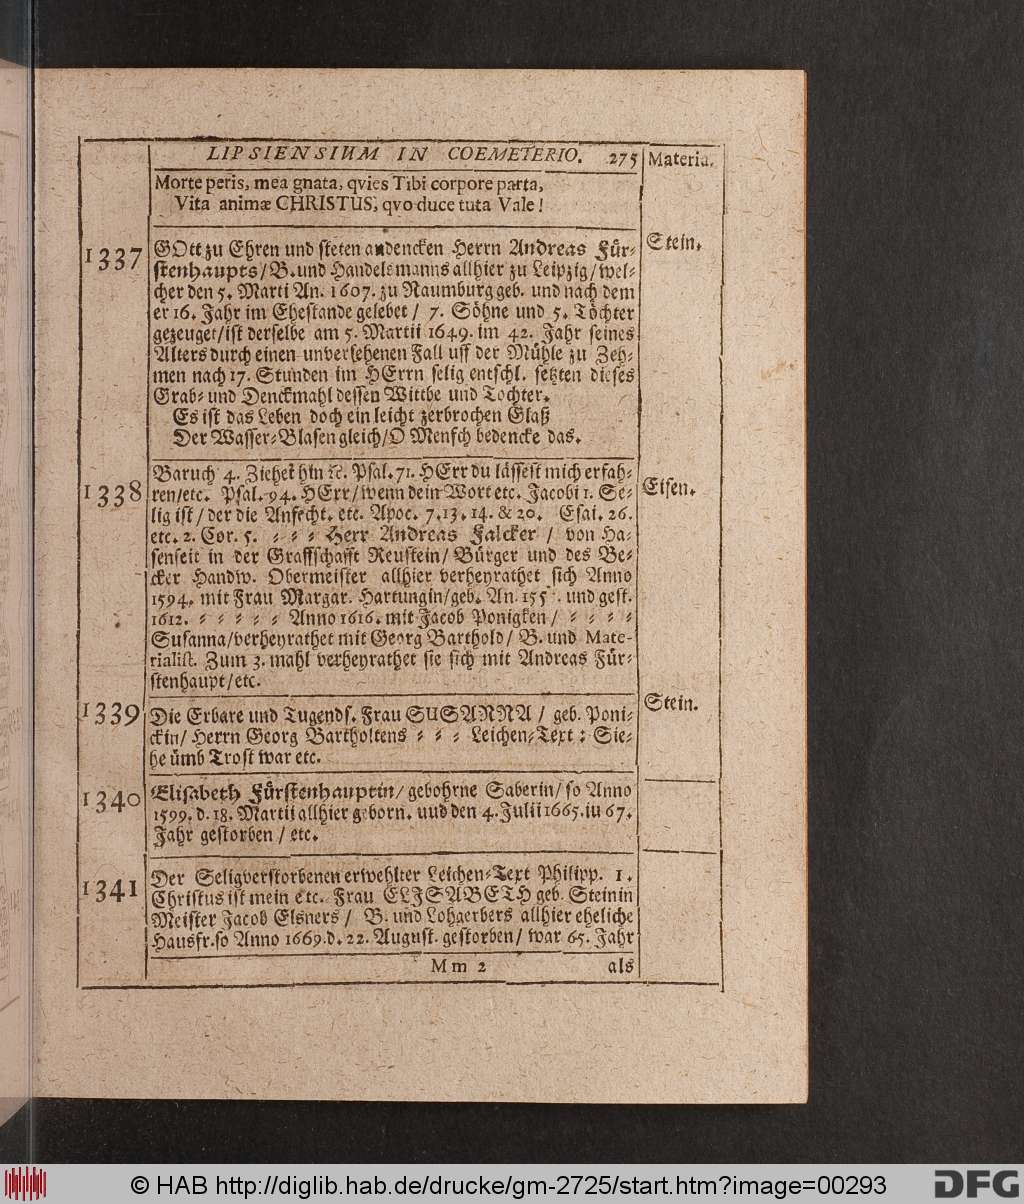 LIPSIENSIUM IN COEMETERIO. 275 Materia.
Morte peris, mea gnata, qvies Tibi corpore parta,
Vita animæ CHRISTUS, qvo duce tuta Vale!
1337 GOtt zu Ehren und steten andencken Herrn Andreas Für- Stein.
stenhaupts/ B. und Handelsmanns allhier zu Leipzig/ wel-
cher den 5. Marti An. 1607. zu Naumburg geb. und nach dem
er 16. Jahr im Ehestande gelebet/ 7. Söhne und 5. Töchter
gezeuget/ ist derselbe am 5. Martii 1649. im 42. Jahr seines
Alters durch einen unversehenen Fall uff der Mühle zu Zeh-
men nach 17. Stunden im HErrn selig entschl. setzten dieses
Grab- und Denckmahl dessen Wittbe und Tochter.
Es ist das Leben doch ein leicht zerbrochen Glaß
Der Wasser-Blasen gleich/ O Mensch bedencke das.
1338 Baruch 4. Ziehet hin ꝛc. Psal. 71. HErr du lässest mich erfah- Eisen.
ren/ etc. Psal. 94. HErr/ wenn dein Wort etc. Jacobi 1. Se-
lig ist/ der die Anfecht. etc. Apoc. 7. 13. 14. & 20. Esai. 26.
etc. 2. Cor. 5. = = = Herr Andreas Falcker / von Ha-
senseit in der Graffschafft Reustein/ Bürger und des Be-
cker Handw. Obermeister allhier verheyrathet sich Anno
1594. mit Frau Margar. Hartungin/ geb. An. 155 . und gest.
1612. = = = = = Anno 1616. mit Jacob Ponigken/ = = = =
Susanna/ verheyrathet mit Georg Barthold/ B. und Mate-
rialist. Zum 3. mahl verheyrathet sie sich mit Andreas Für-
stenhaupt/ etc.
1339 Die Erbare und Tugends. Frau SUSANNA / geb. Poni- Stein.
ckin/ Herrn Georg Bartholtens = = = Leichen-Text: Sie-
he ümb Trost war etc.
1340 Elisabeth Fürstenhauptin/ gebohrne Saberin/ so Anno
1599. d. 18. Martii allhier geborn. uud den 4. Julii 1665. iu 67.
Jahr gestorben/ etc.
1341 Der Seligverstorbenen erwehlter Leichen-Text Philipp. 1.
Christus ist mein etc. Frau ELISABETH geb. Steinin
Meister Jacob Elsners/ B. und Lohgerbers allhier eheliche
Hausfr. so Anno 1669. d. 22. August. gestorben/ war 65. Jahr
Mm 2 als
© HAB http://diglib.hab.de/drucke/gm-2725/start.htm?image=00293
DFG